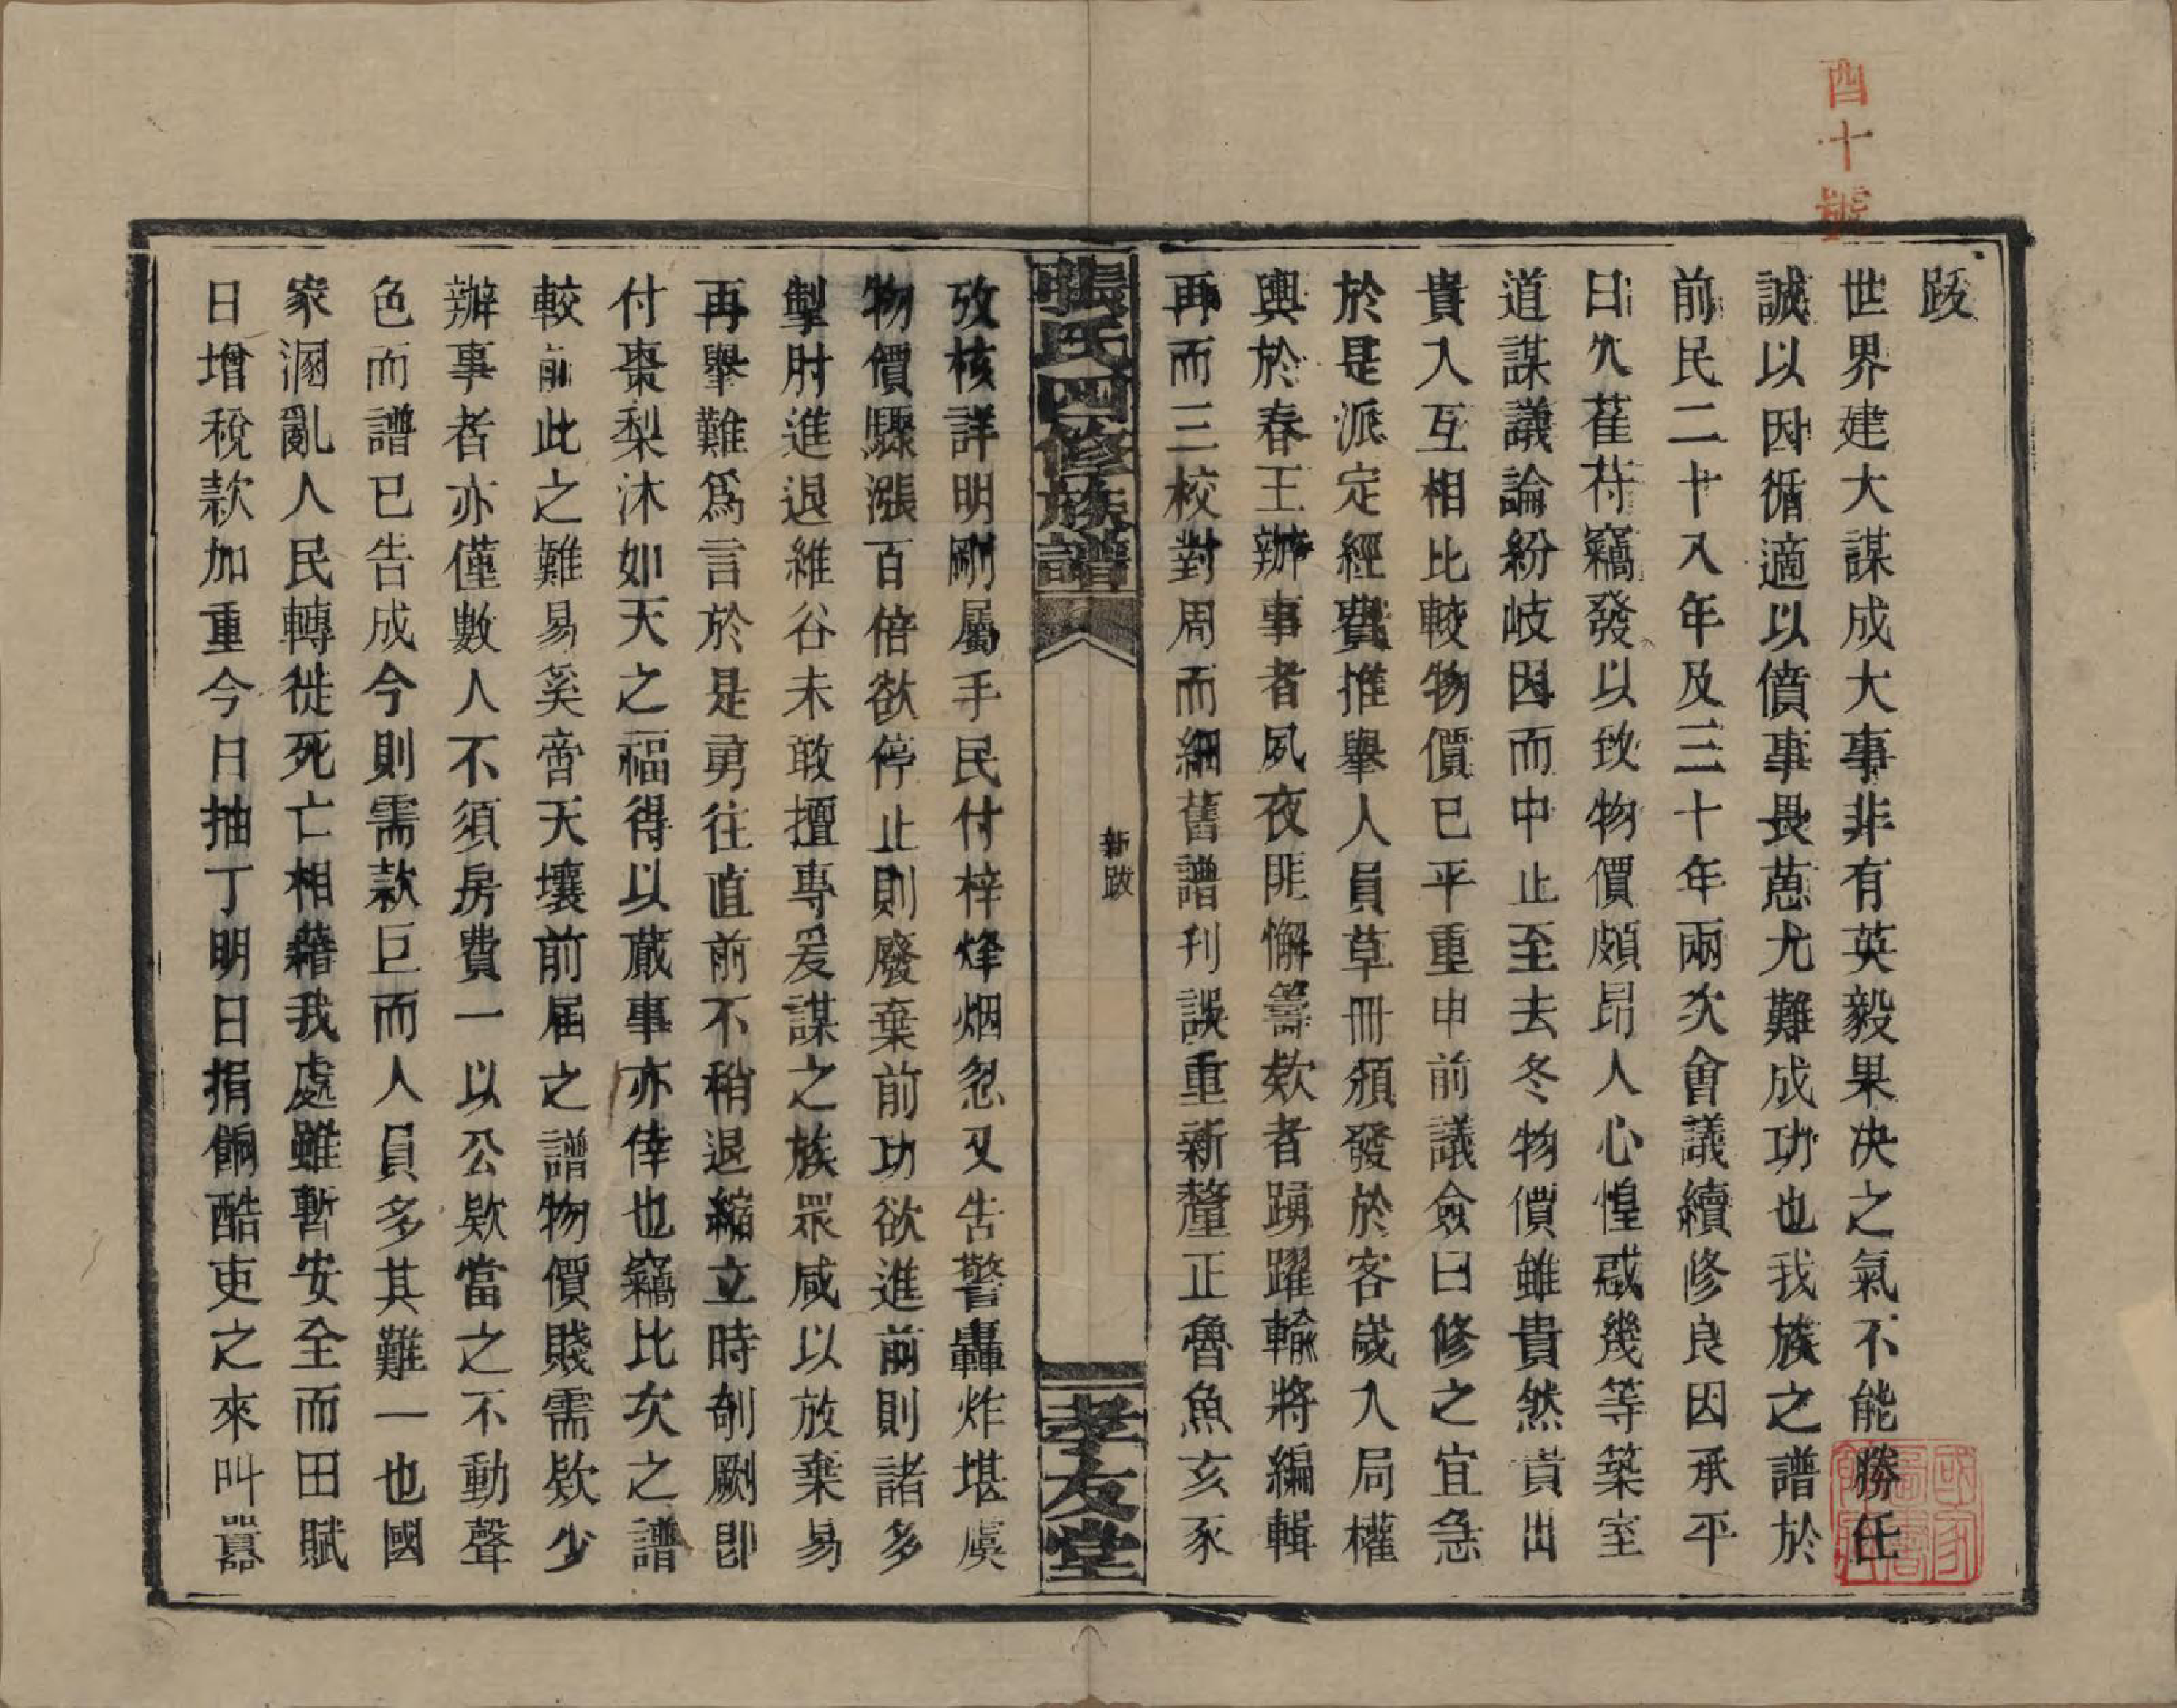 四十號
跋
世界建大謀成大事非有英毅果决之氣不能勝任
誠以因循適以僨事畏葸尤難成功也我族之譜於
前民二十八年及三十年兩次會議續修良因承平
日久萑苻竊發以致物價頗昂人心惶惑幾等築室
道謀議論紛歧因而中止至去冬物價雖貴然貴出
貴入互相比較物價已平重申前議僉曰修之宜急
於是派定經費推舉人員草冊頒發於客歲入局權
輿於春王辦事者夙夜匪懈籌欵者踴躍輸將編輯
再而三校對周而細舊譜刊誤重新釐正魯魚亥豕
張氏四修族譜
新跋
孝友堂
攷核詳明剛屬手民付梓烽烟忽又告警轟炸堪虞
物價驟漲百倍欲停止則廢棄前功欲進前則諸多
掣肘進退維谷未敢擅專爰謀之族眾咸以放棄易
再舉難爲言於是勇往直前不稍退縮立時剞劂卽
付棗梨沐如天之福得以蕆事亦倖也竊比次之譜
較前此之難易奚啻天壤前屆之譜物價賤需欵少
辦事者亦僅數人不須房費一以公欵當之不動聲
色而譜已告成今則需款巨而人員多其難一也國
家溷亂人民轉徙死亡相藉我處雖暫安全而田賦
日增稅款加重今日抽丁明日捐餉酷吏之來叫囂